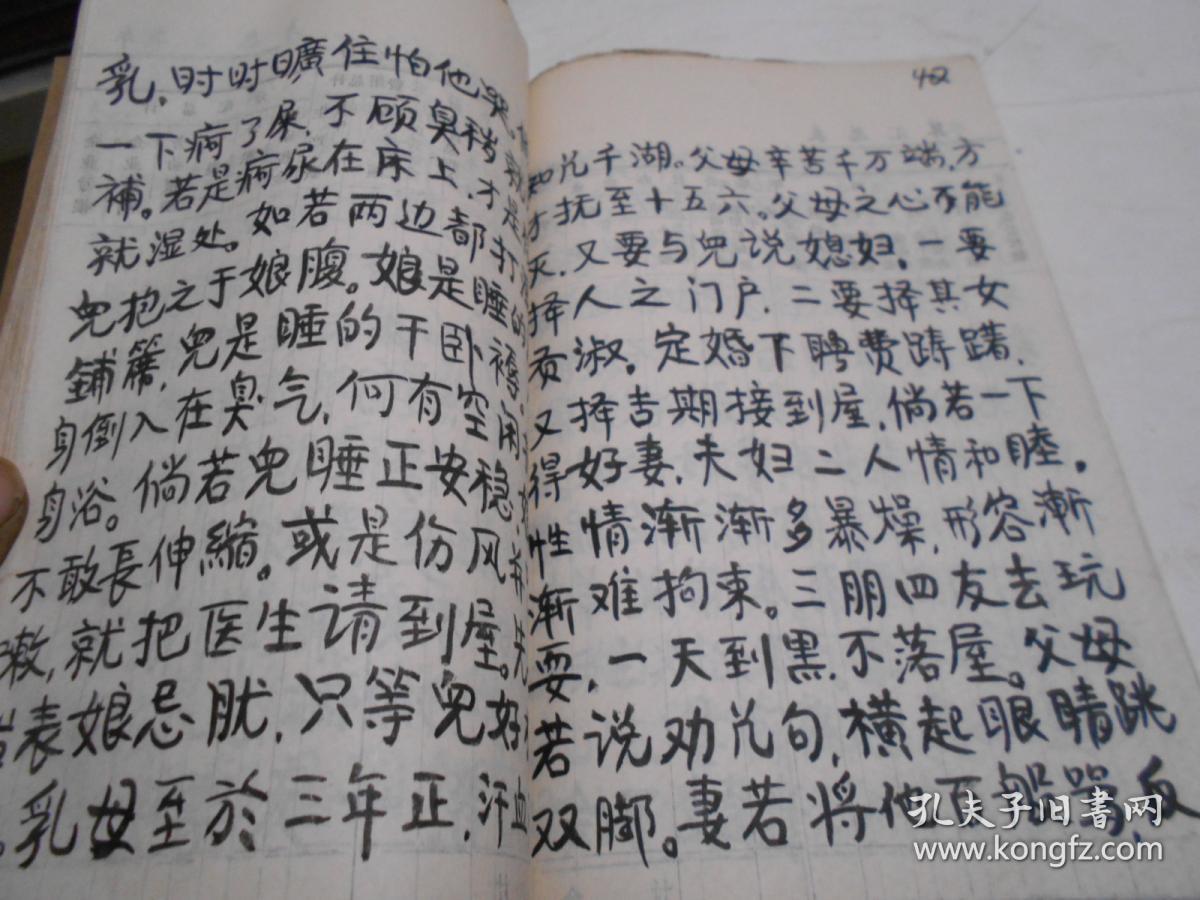 乳,时时曠住怕他哭,
一下疴了屎,不顾臭秽
補。若是疴尿在床上,才是
就湿处。如若两边都打
兒抱之于娘腹。娘是睡的
鋪簾,兒是睡的干卧褥。
身倒入在臭气,何有空闲
身浴。倘若兒睡正安稳,
不敢長伸縮。或是伤风
嗽,就把医生请到屋。先
表娘忌肬,只等兒好
。乳母至於三年正,汗血
42
知兊千湖。父母辛苦千万端,方
才抚至十五六。父母之心不能
灭,又要与兒说媳妇,一要
择人之门户,二要择其女
贡淑。定婚下聘费踌躇,
又择吉期接到屋,倘若一下
得好妻,夫妇二人情和睦。
性情渐渐多暴燥,形容漸
漸难拘束。三朋四友去玩
耍,一天到黑不落屋。父母
若说劝兊句,横起眼睛跳
双脚。妻若将他
反
孔夫子旧书网
www.kongfz.com